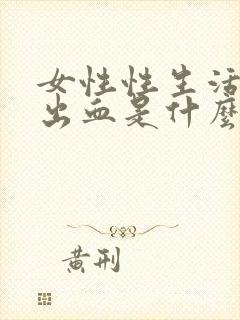 女性性生活
出血是什麼
黄刑